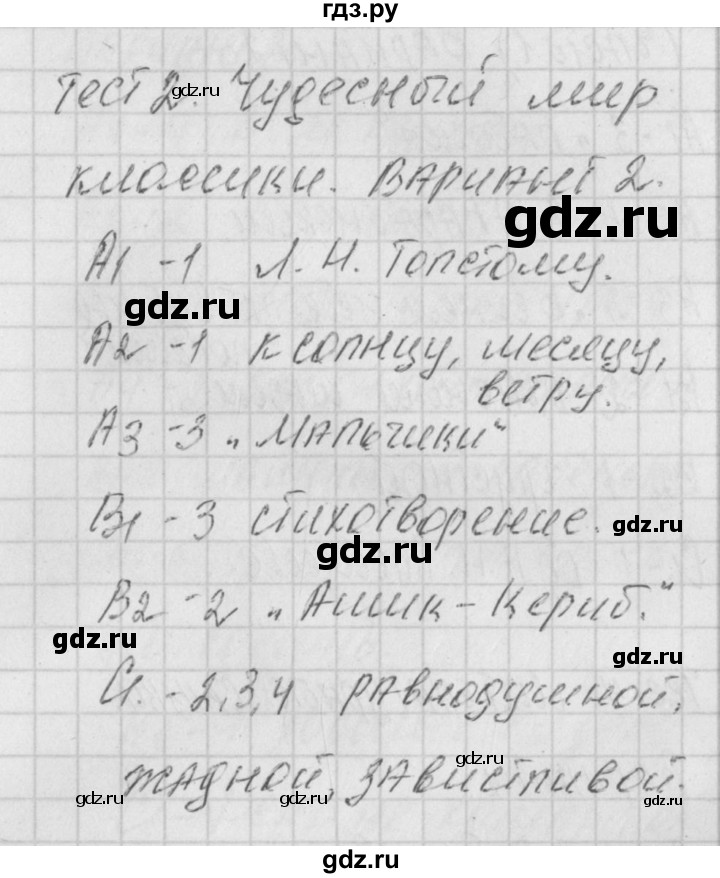 гдз.ру
Тест 2. Чудесный мир
gdz.ru
классики. Вариант 2.
gdz.ru
А1 - 1 Л. Н. Толстому.
gdz.ru
А2 - 1 к солнцу, месяцу,
ветру.
А3 - 3 „Мальчики“
В1 - 3 стихотворение. gdz.ru
gdz.ru
В2 - 2 „Ашик-Кериб.“
gdz.ru
gdz.ru
С1. - 2,3,4 равнодушной,
gdz.ru
жадной, завистливой.
gdz.ru gdz.ru gdz.ru
gdz.ru